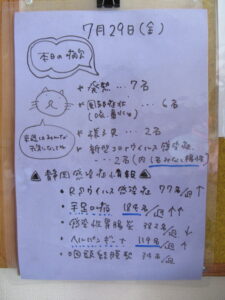 7月29日(金)
本日の病欠
発熱…7名
…6名
様子見…2名
新型コロナウイルス感染症
…2名(内1名みなし陽性)
静岡感染症情報
・RSウイルス感染症 77名/週↑
・手足口病 184名/週↑↑
・感染性胃腸炎 382名/週↓
・ヘルパンギーナ 119名/週↑
・咽頭結膜熱 34名/週